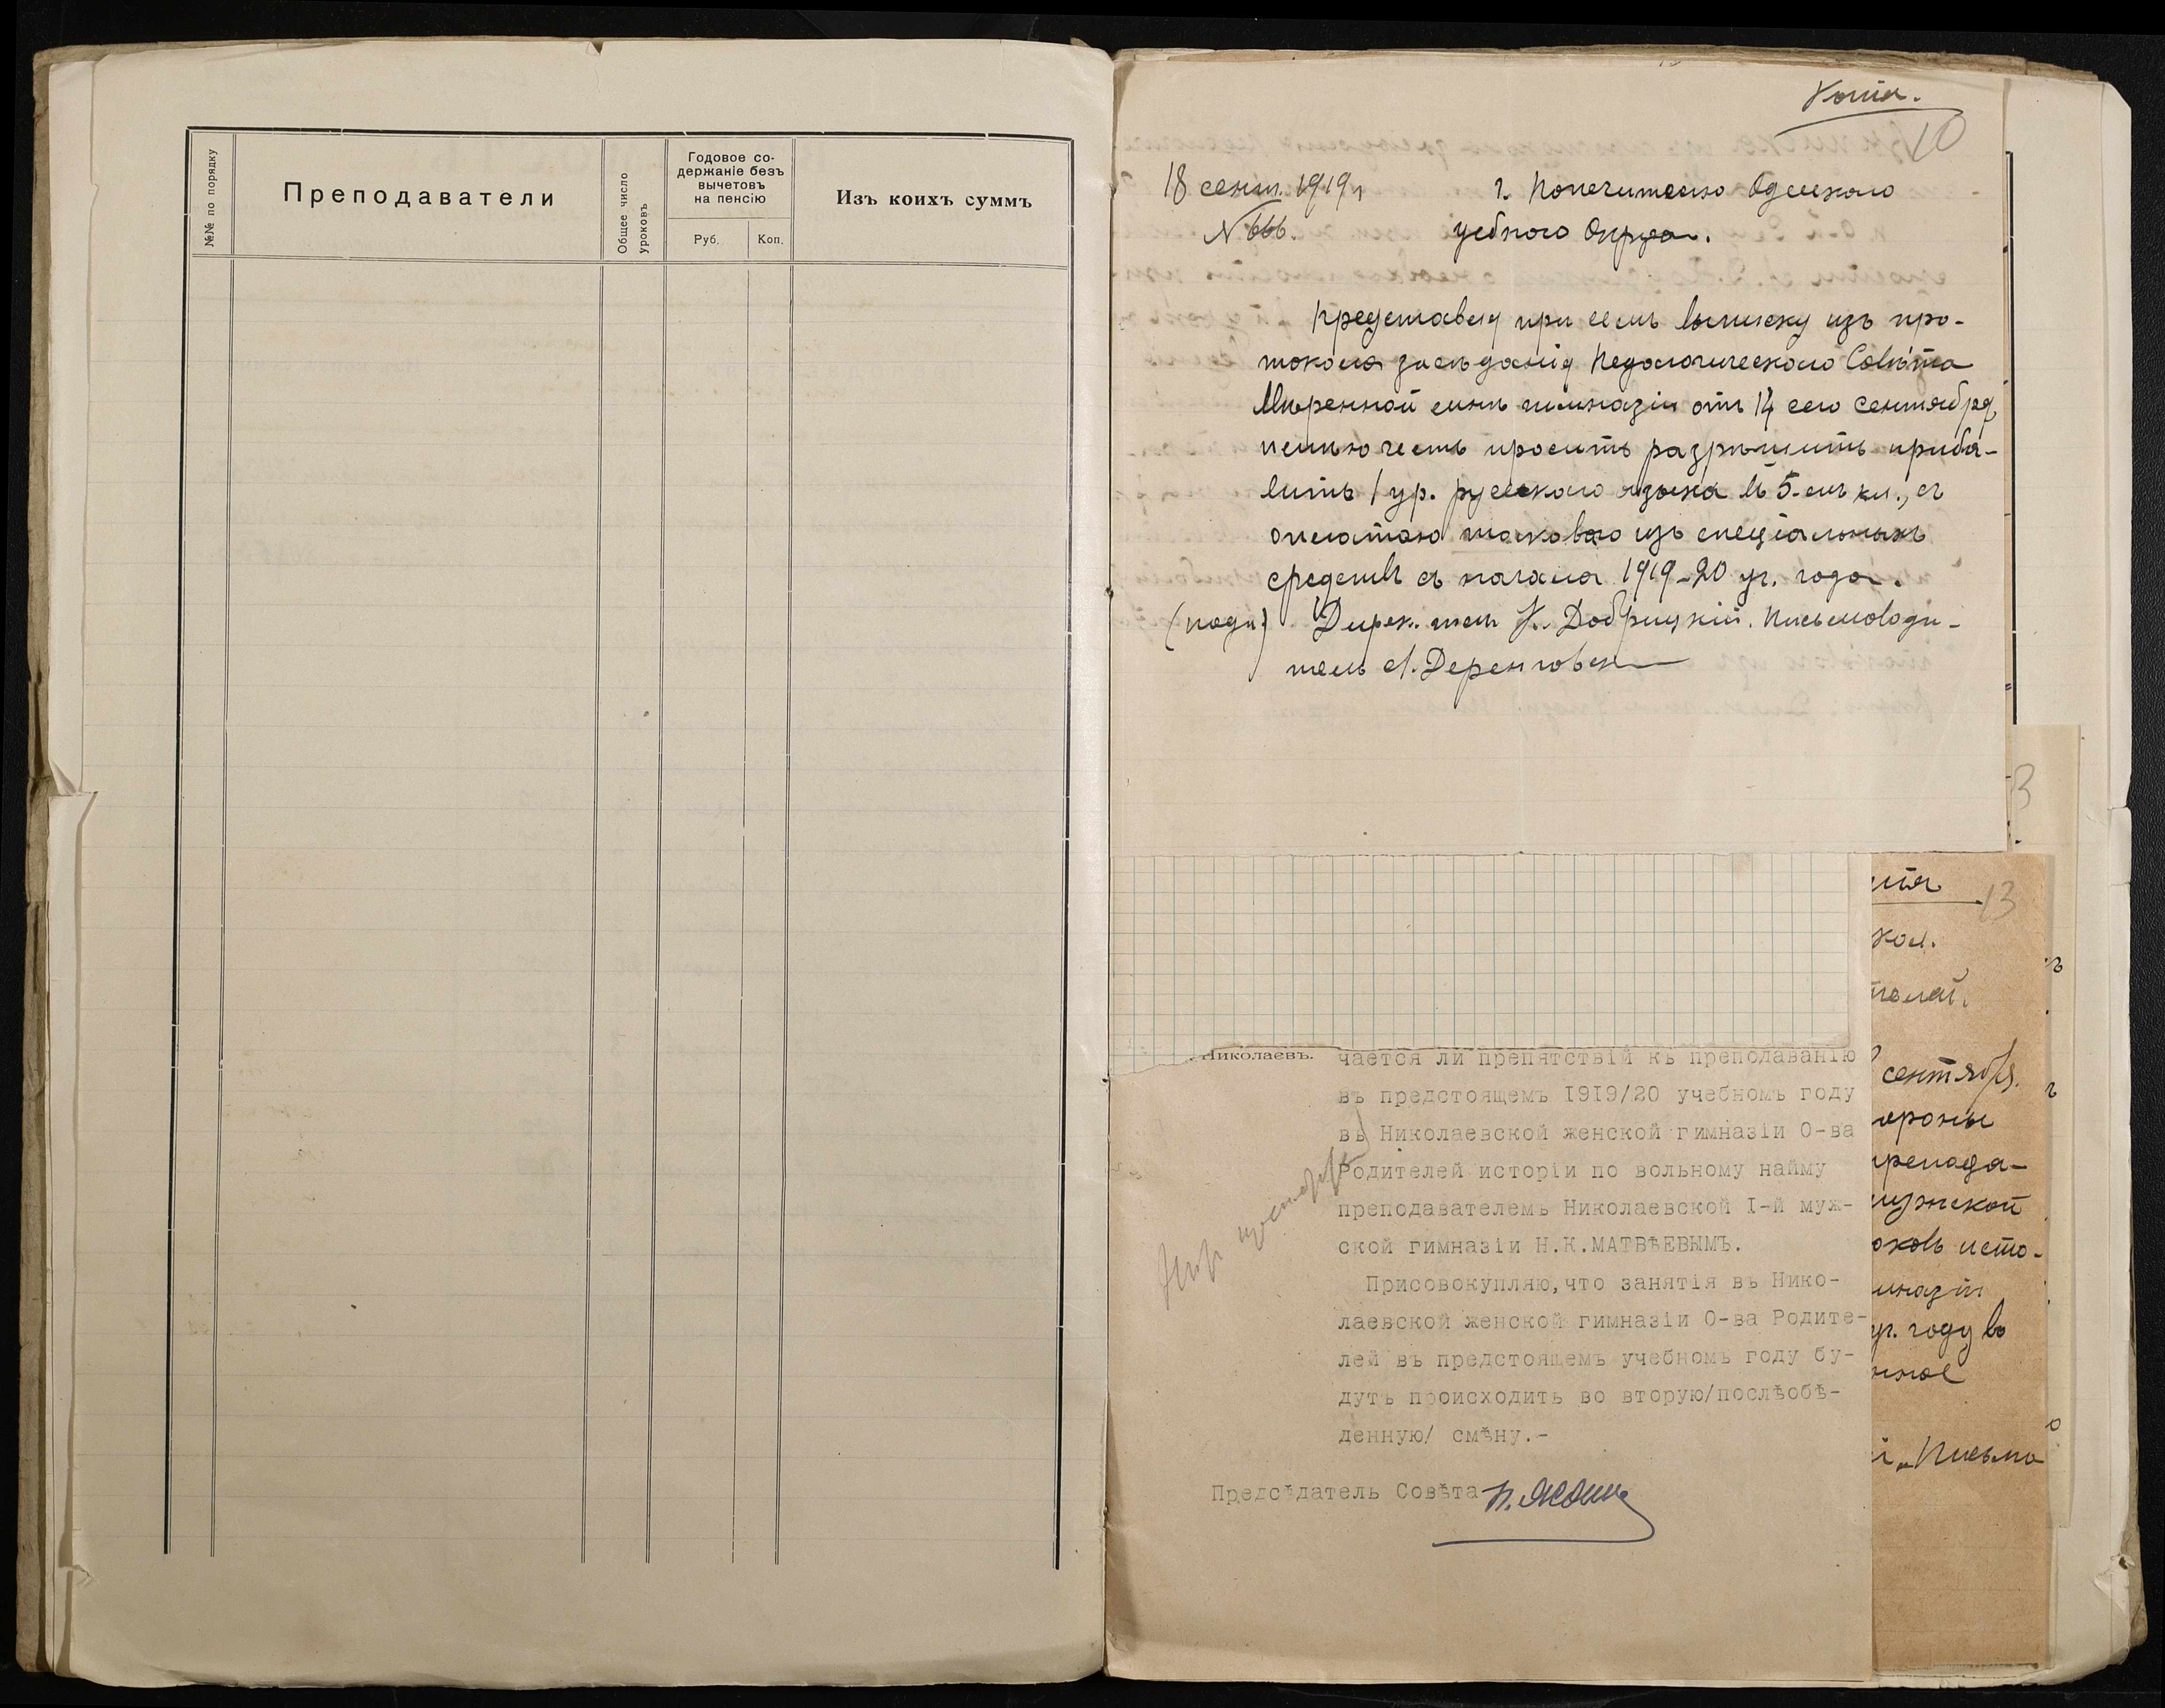 №№ по порядку
Преподаватели
Общее число
уроковъ
Годовое со-
держаніе безъ
вычетовъ
на пенсію
Руб.
Коп.
Изъ коихъ суммъ
Копія.
10
18 сент. 1919 г.
№ 666.
г. Попечителю Одесскаго
учебнаго Округа.
Представляя при семъ выписку изъ про-
токола засѣданія Педагогическаго Совѣта
ввѣренной мнѣ гимназіи отъ 14 сего сентября,
имѣю честь просить разрѣшить приба-
вить 1 ур. русскаго языка въ 5-мъ кл., съ
оплатою таковаго изъ спеціальныхъ
средствъ съ начала 1919-20 уч. года.
(подп.) Директ. К. Добрицкій. Письмоводи-
тель
Николаевъ.
чается ли препятствій къ преподаванію
въ предстоящемъ 1919/20 учебномъ году
въ Николаевской женской гимназіи О-ва
Родителей исторіи по вольному найму
преподавателемъ Николаевской I-й муж-
ской гимназіи Н.К.МАТВѢЕВЫМЪ.
Присовокупляю,что занятія въ Нико-
лаевской женской гимназіи О-ва Родите-
лей въ предстоящемъ учебномъ году бу-
дутъ происходить во вторую/послѣобѣ-
денную/ смѣну.-
Предсѣдатель Совѣта
3
пія
13
кол.
телей.
сентября.
ороны
препода-
мужской
оковъ исто-
мназіи
уч. году во
нное
Письмо